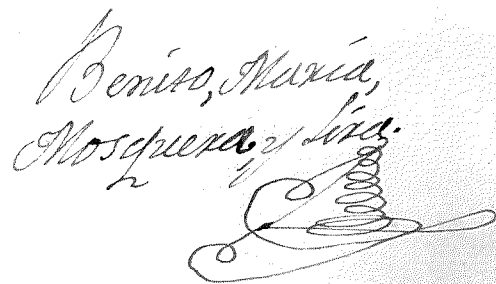 Benito, María,
Mosquera, y Lira.